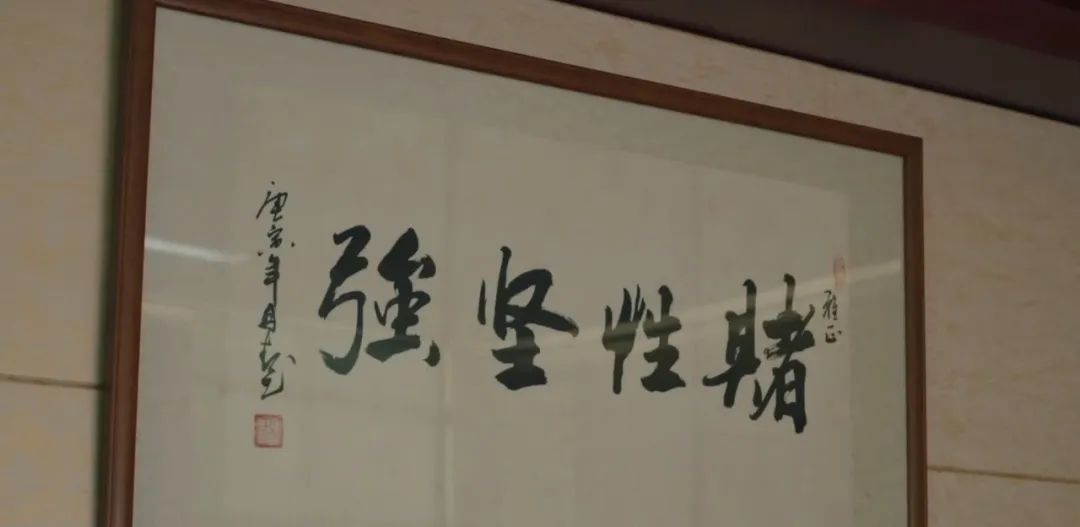 雅正
賭性坚強
庚寅年月